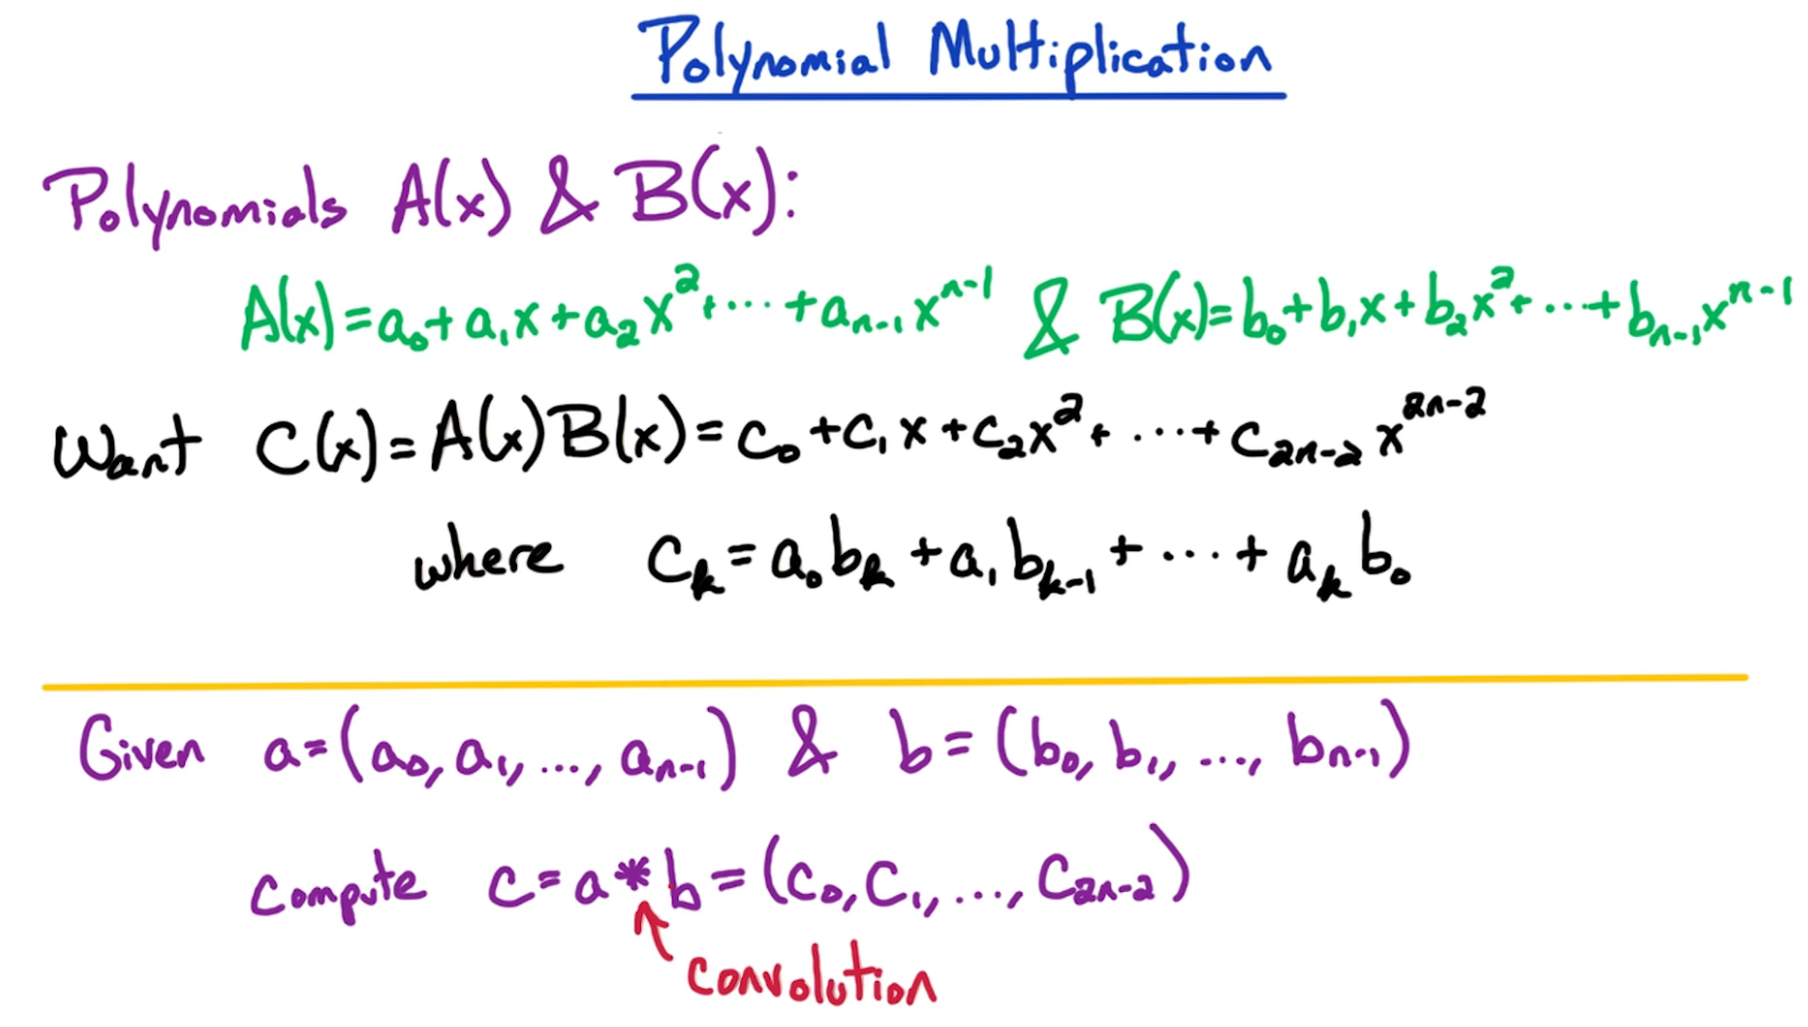 Polynomial Multiplication
Polynomials A(x) & B(x):
A(x)=a₀+a₁x+a₂x²+⋯+aₙ₋₁xⁿ⁻¹ & B(x)=b₀+b₁x+b₂x²+⋯+bₙ₋₁xⁿ⁻¹
Want C(x)=A(x)B(x)=c₀+c₁x+c₂x²+⋯+c₂ₙ₋₂x²ⁿ⁻²
where cₖ=a₀bₖ+a₁bₖ₋₁+⋯+aₖb₀
Given a=(a₀,a₁,…,aₙ₋₁) & b=(b₀,b₁,…,bₙ₋₁)
compute c=a*b=(c₀,c₁,…,c₂ₙ₋₂)
convolution